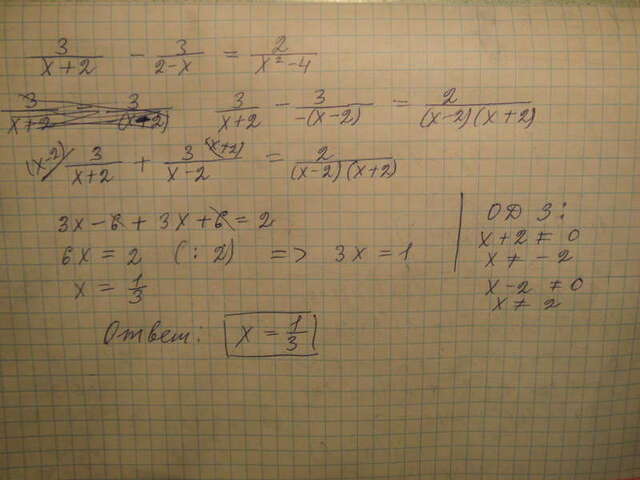 3/(x+2) - 3/(2-x) = 2/(x²-4)
3/(x+2) - 3/(x+2) 3/(x+2) - 3/(-(x-2)) = 2/((x-2)(x+2))
(x-2)/ 3/(x+2) + 3/(x-2) (x+2) = 2/((x-2)(x+2))
3x - 6 + 3x + 6 = 2
6x = 2 (: 2) => 3x = 1
x = 1/3
Ответ: x = 1/3
ОДЗ:
x+2 ≠ 0
x ≠ -2
x-2 ≠ 0
x ≠ 2